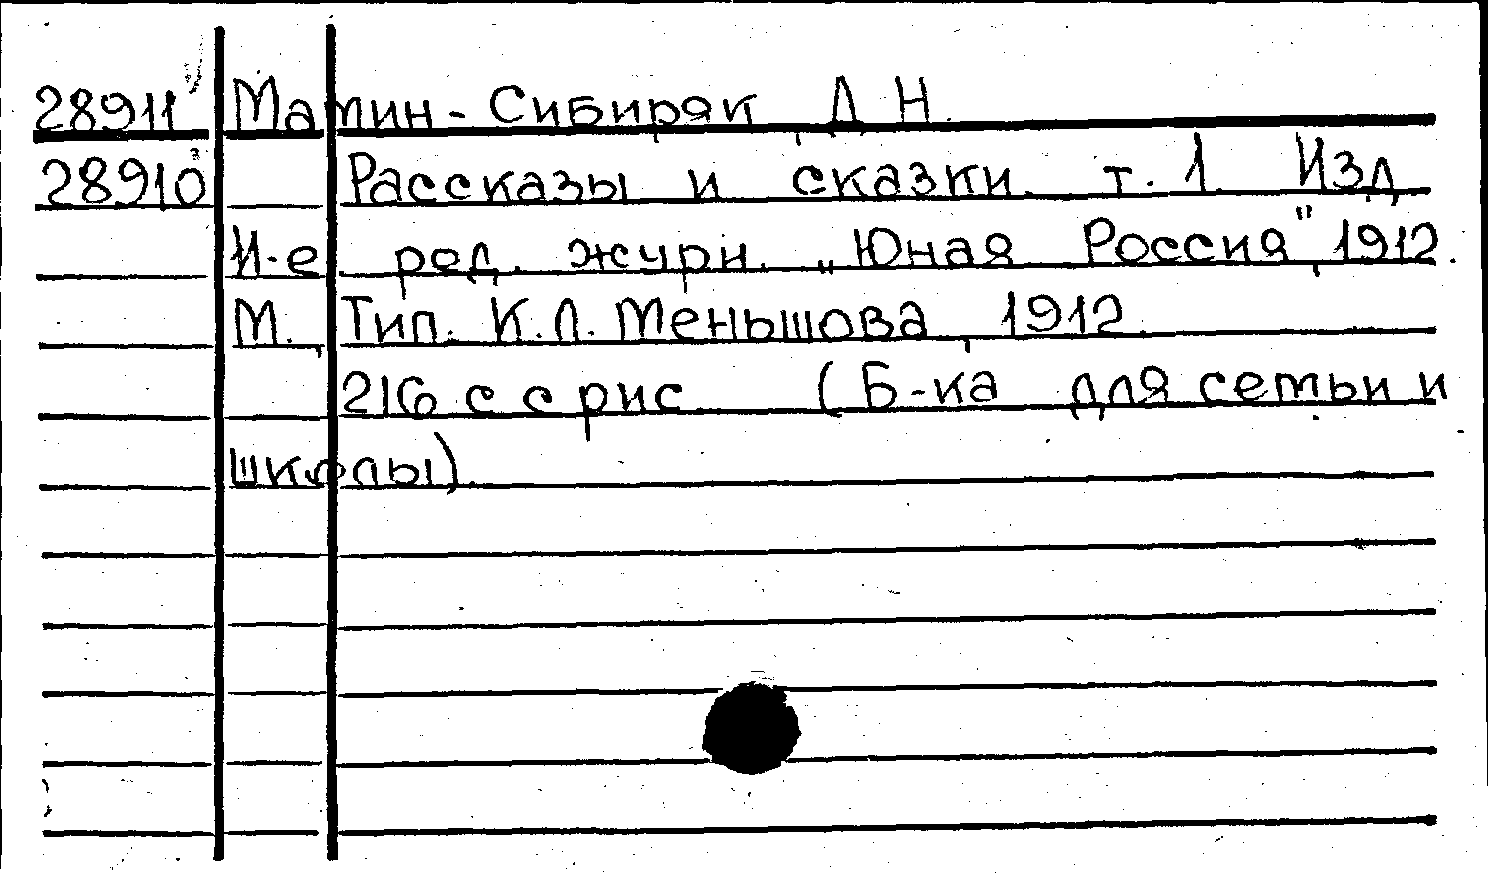 28911 Мамин-Сибиряк, Д.Н.
28910 Рассказы и сказки. т.1. Изд.
И-е ред. журн. „Юная Россия", 1912.
М., Тип. К.Л. Меньшова, 1912.
216 с. с рис. (Б-ка для семьи и
школы).